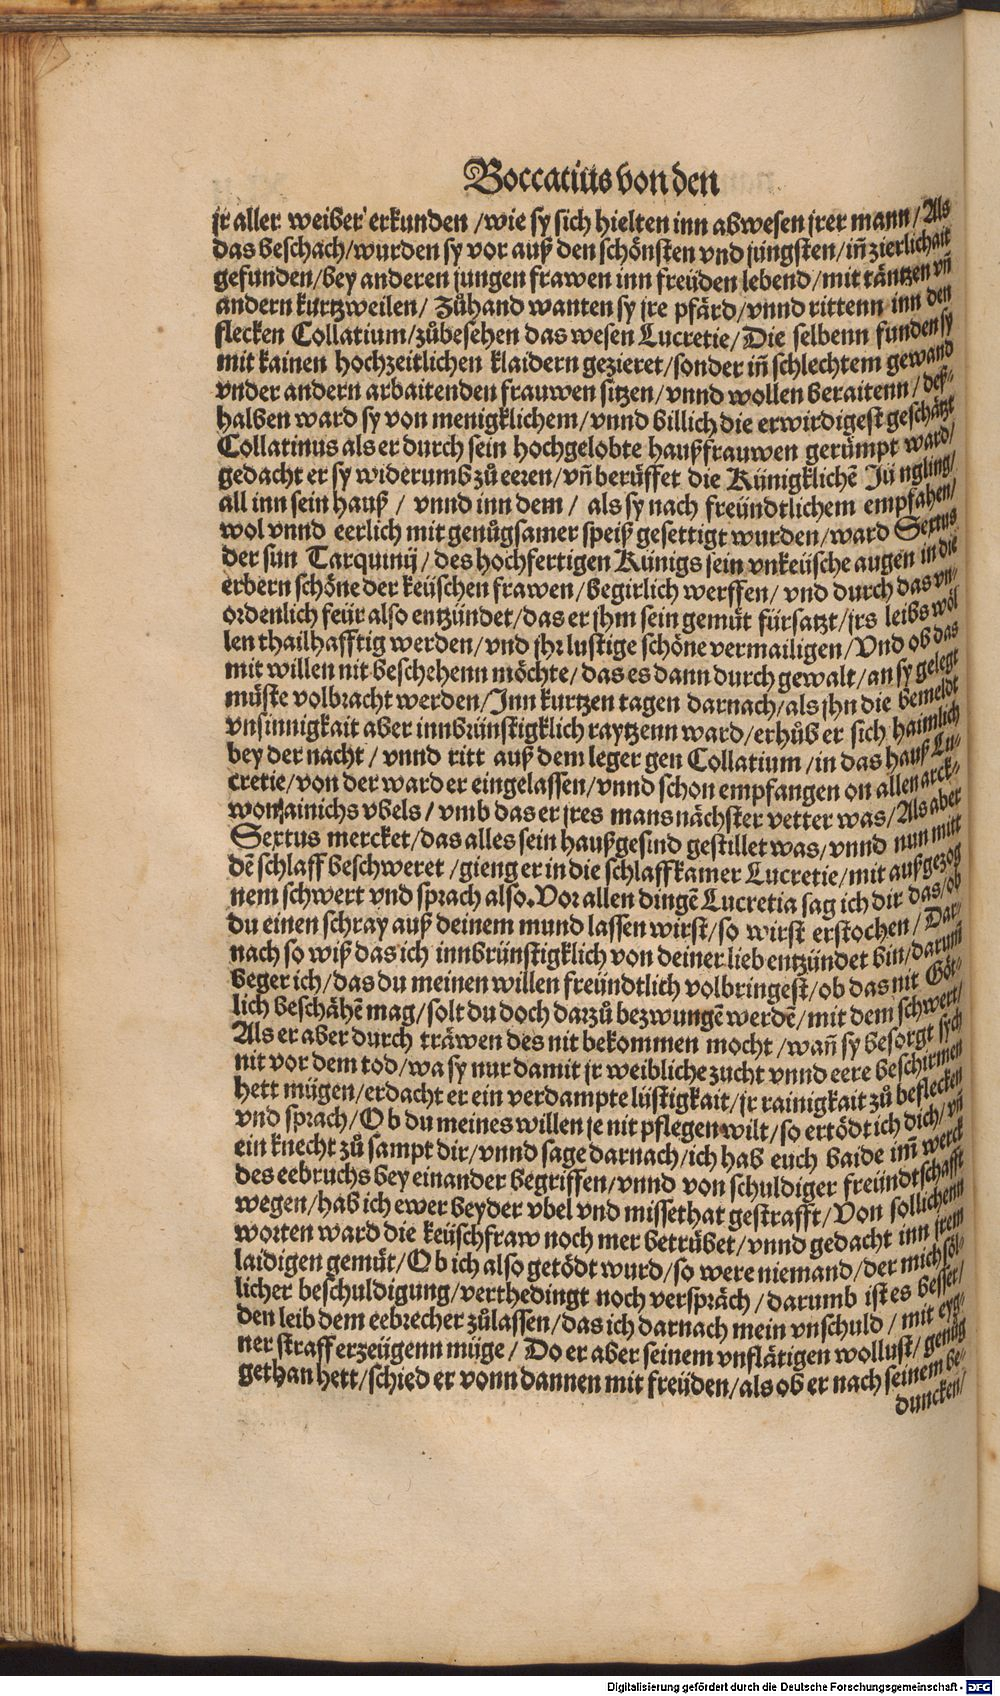 Boccatius von den
jr aller weiber erkunden /wie sy sich hielten inn abwesen jrer mann/Als
das beschach/wurden sy vor auß den schönsten vnd jüngsten/in̄ zierlichait
gefunden/bey anderen jungen frawen inn freüden lebend/mit täntzen vn̄
andern kurtzweilen/ Zůhand wanten sy jre pfärd/vnnd rittenn inn den
flecken Collatium/zůbesehen das wesen Lucretie/Die selbenn funden sy
mit kainen hochzeitlichen klaidern gezieret/sonder in̄ schlechtem gewand
vnder andern arbaitenden frauwen sitzen/vnnd wollen beraitenn/deß-
halben ward sy von menigklichem/vnnd billich die erwirdigest geschätzt
Collatinus als er durch sein hochgelobte haußfrauwen gerümpt ward/
gedacht er sy widerumb zů eeren/vn̄ berüffet die Künigklichē Jüngling/
all inn sein hauß / vnnd inn dem / als sy nach freündtlichem empfahen/
wol vnnd eerlich mit genůgsamer speiß gesettigt wurden/ward Sextus
der sun Tarquinij/des hochfertigen Künigs sein vnkeüsche augen in die
erbern schöne der keüschen frawen/begirlich werffen/vnd durch das vn-
ordenlich feür also entzündet/das er jhm sein gemüt fürsatzt/jrs leibs wöl
len thailhafftig werden/vnd jhr lustige schöne vermailigen/Vnd ob das
mit willen nit beschehenn möchte/das es dann durch gewalt/an sy gelegt
müste volbracht werden/Jnn kurtzen tagen darnach/als jhn die bemeldt
vnsinnigkait aber innbrünstigklich raytzenn ward/erhůb er sich haimlich
bey der nacht/vnnd ritt auß dem leger gen Collatium/in das hauß Lu-
cretie/von der ward er eingelassen/vnnd schon empfangen on allen arck-
won ainichs vbels/vmb das er jres mans nächster vetter was/Als aber
Sextus mercket/das alles sein haußgesind gestillet was/vnnd nun mitt
dē schlaff beschweret /gieng er in die schlaffkamer Lucretie/mit außgezog
nem schwert vnd sprach also. Vor allen dingē Lucretia sag ich dir das/ob
du einen schray auß deinem mund lassen wirst/so wirst erstochen/Dar-
nach so wiß das ich innbrünstigklich von deiner lieb entzündet bin/darum̄
beger ich/das du meinen willen freündtlich volbringest/ob das nit Göt-
lich beschähē mag/solt du doch darzů bezwungē werdē/mit dem schwert/
Als er aber durch träwen des nit bekommen mocht/wan̄ sy besorgt sych
nit vor dem tod/wa sy nur damit jr weibliche zucht vnnd eere beschirmen
hett mügen/erdacht er ein verdampte lüstigkait/jr rainigkait zů beflecken
vnd sprach/Ob du meines willen je nit pflegen wilt/so ertödt ich dich/vn̄
ein knecht zů sampt dir/vnnd sage darnach/ich hab euch baide im̄ werck
des eebruchs bey einander begriffen/vnnd von schuldiger freündtschafft
wegen/hab ich ewer beyder vbel vnd missethat gestrafft/Von sollichenn
worten ward die keüschfraw noch mer betrübet/vnnd gedacht inn jrem
laidigen gemüt/Ob ich also getödt wurd/so were niemand/der mich söl-
licher beschuldigung/verthedingt noch verspräch/darumb ist es besser/
den leib dem eebrecher zůlassen/das ich darnach mein vnschuld/mit eyg-
ner straff erzeügenn müge/ Do er aber seinem vnflätigen wollust/genůg
gethan hett/schied er vonn dannen mit freüden/als ob er nach seinem be-
duncken/
Digitalisierung gefördert durch die Deutsche Forschungsgemeinschaft - DFG